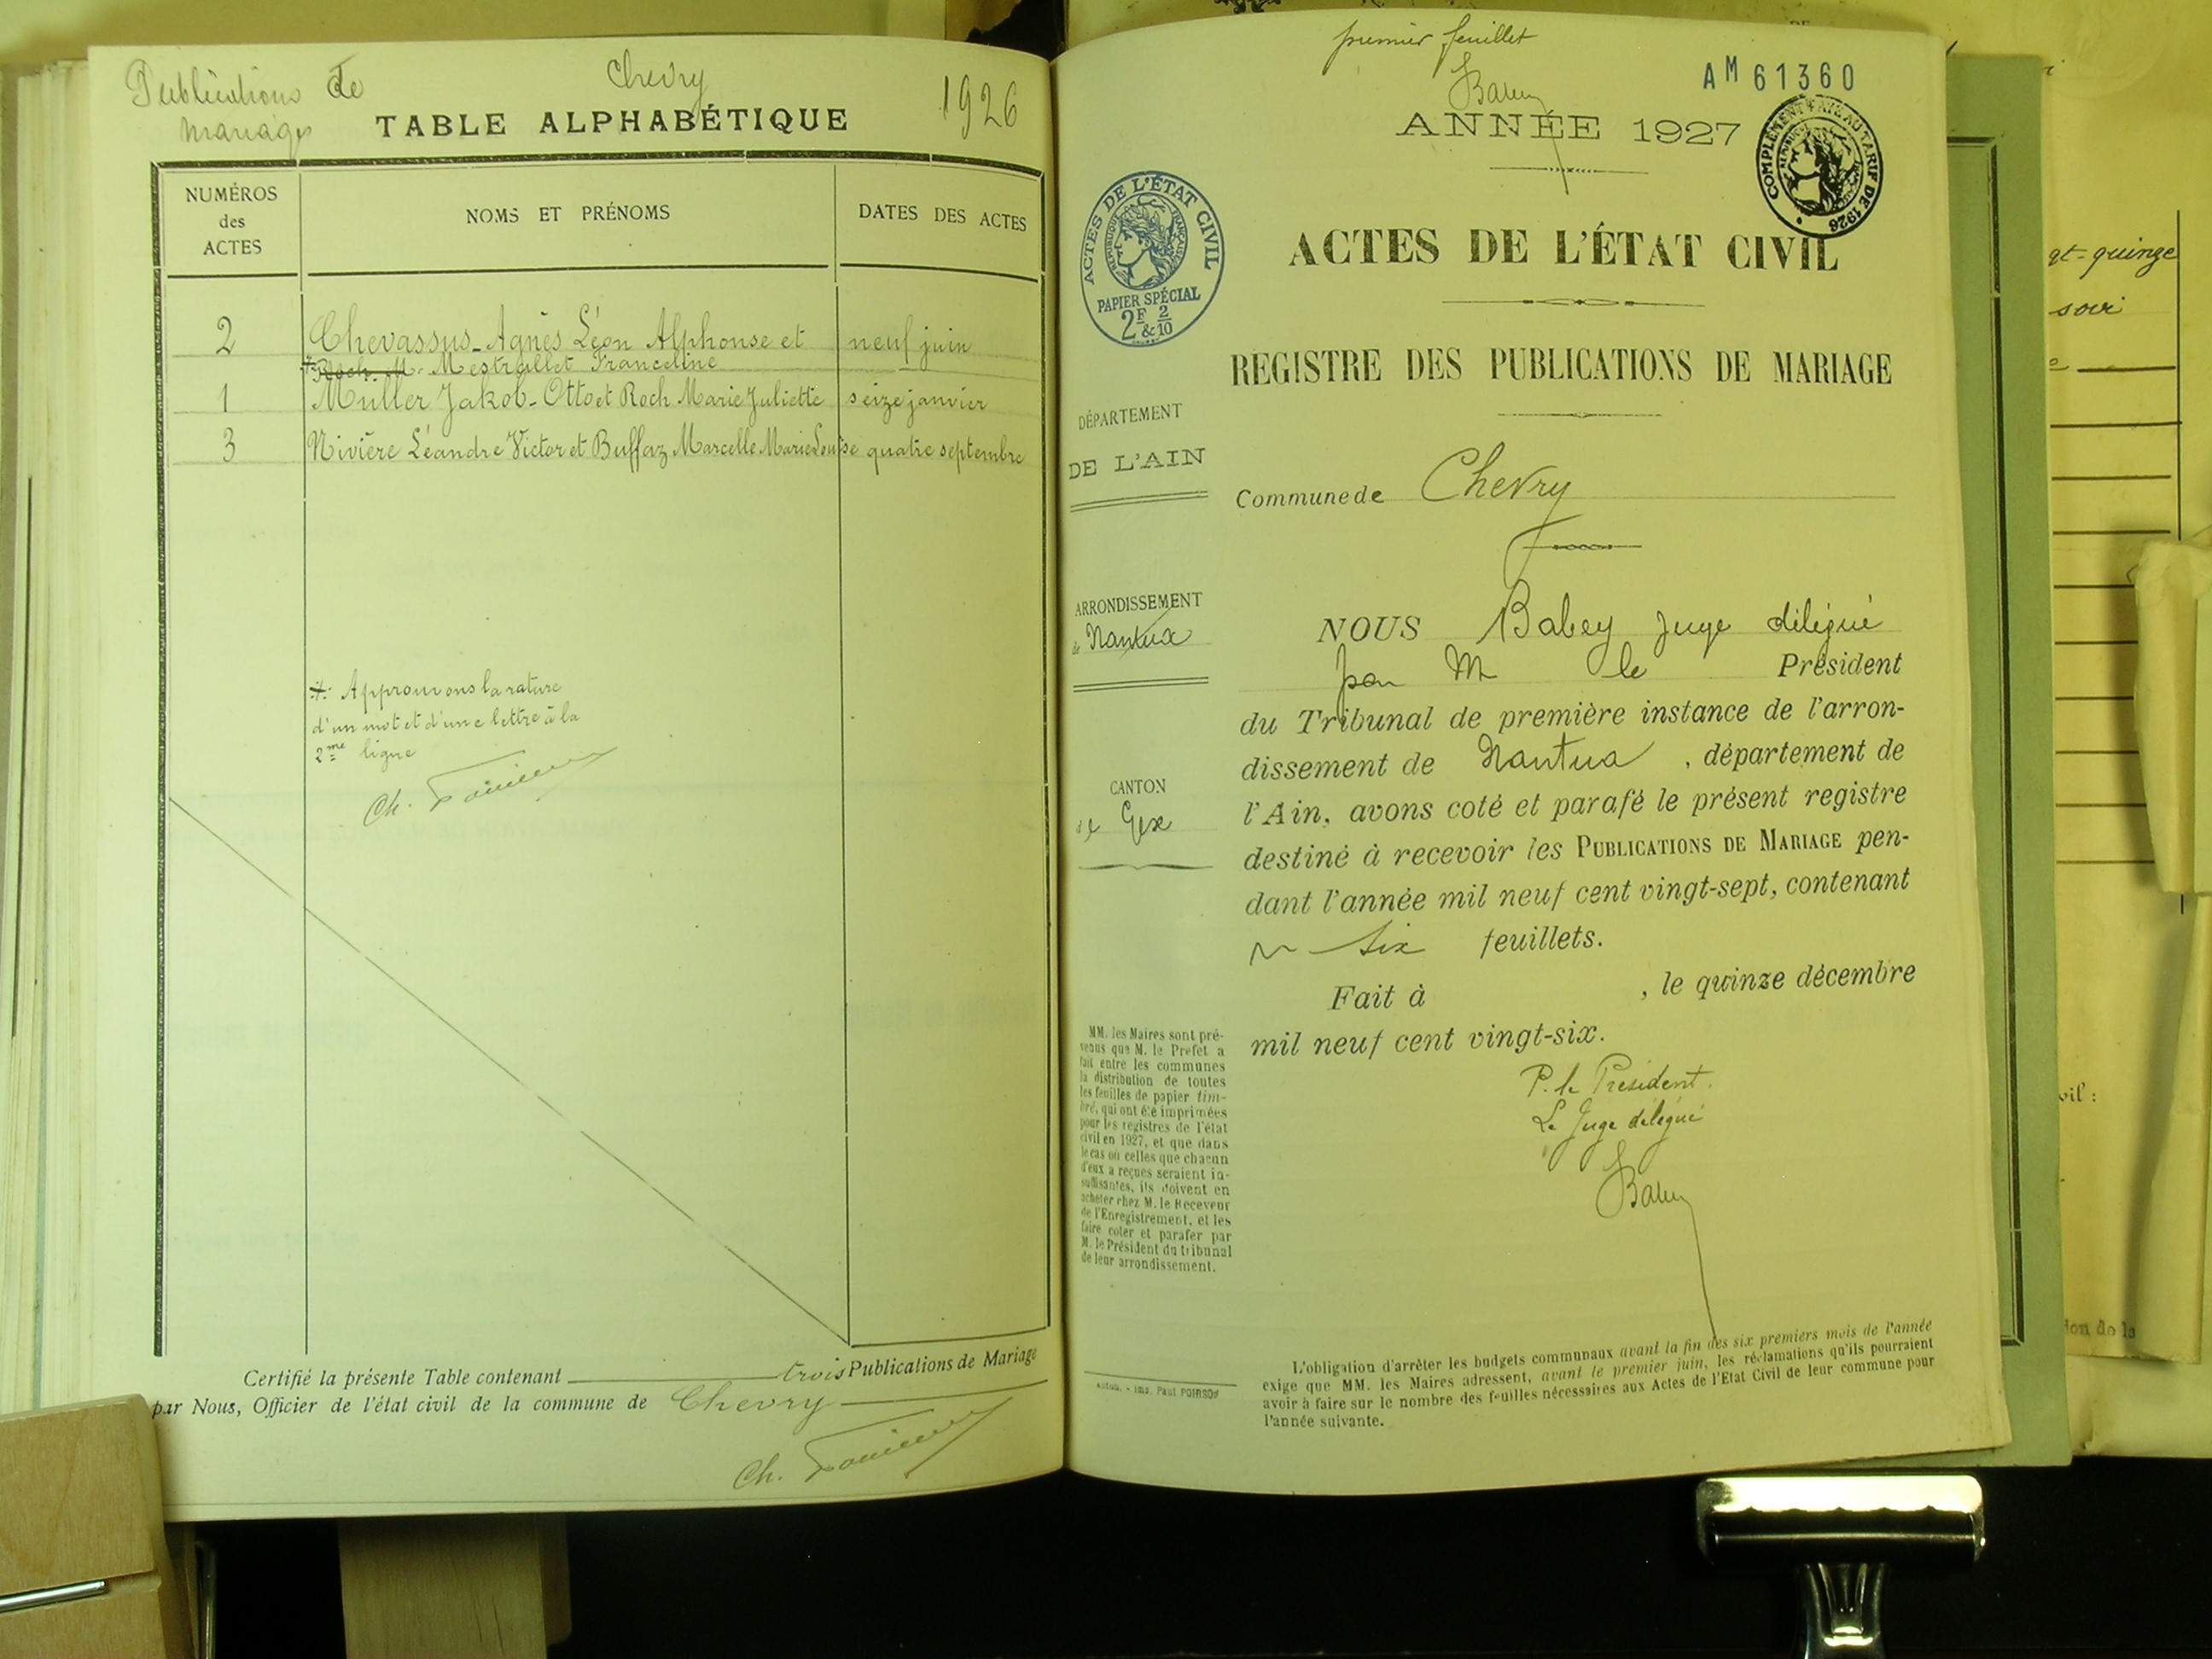 Publications de
mariage
Chevry
1926
TABLE ALPHABÉTIQUE
NUMÉROS
des
ACTES
NOMS ET PRÉNOMS
DATES DES ACTES
2 Chevassus-Agnès Léon Alphonse et neuf juin
Roch. M. Mestrallet Franceline
1 Muller Jakob-Otto et Roch Marie Juliette seize janvier
3 Nivière Léandre Victor et Buffaz Marcelle Marie Louise quatre septembre
Approuvons la rature
d'un mot et d'une lettre à la
2me ligne
Ch.
Certifié la présente Table contenant trois Publications de Mariage
par Nous, Officier de l'état civil de la commune de Chevry
Ch.
premier feuillet
Babey
AM 61360
ANNÉE 1927
COMPLÉMENT PAYÉ AU TARIF DE 1926
ACTES DE L'ÉTAT CIVIL
RÉPUBLIQUE FRANÇAISE
PAPIER SPÉCIAL
2F & 2/10
ACTES DE L'ÉTAT CIVIL
REGISTRE DES PUBLICATIONS DE MARIAGE
DÉPARTEMENT
DE L'AIN
Commune de Chevry
ARRONDISSEMENT
de Nantua
CANTON
de Gex
NOUS Babey Juge délégué
par M le Président
du Tribunal de première instance de l'arron-
dissement de Nantua, département de
l'Ain, avons coté et parafé le présent registre
destiné à recevoir les PUBLICATIONS DE MARIAGE pen-
dant l'année mil neuf cent vingt-sept, contenant
six feuillets.
Fait à , le quinze décembre
mil neuf cent vingt-six.
P. le Président
Le Juge délégué
Babey
MM. les Maires sont pré-
venus que M. le Préfet a
fait entre les communes
la distribution de toutes
les feuilles de papier tim-
bré, qui ont été imprimées
pour les registres de l'état
civil en 1927, et que dans
le cas où celles que chacun
d'eux a reçues seraient in-
suffisantes, ils doivent en
acheter chez M. le Receveur
de l'Enregistrement, et les
faire coter et parafer par
M. le Président du tribunal
de leur arrondissement.
Imp. Paul POIRSON
L'obligation d'arrêter les budgets communaux avant la fin des six premiers mois de l'année
exige que MM. les Maires adressent, avant le premier juin, les réclamations qu'ils pourraient
avoir à faire sur le nombre des feuilles nécessaires aux Actes de l'Etat Civil de leur commune pour
l'année suivante.
gt-quinze
soir